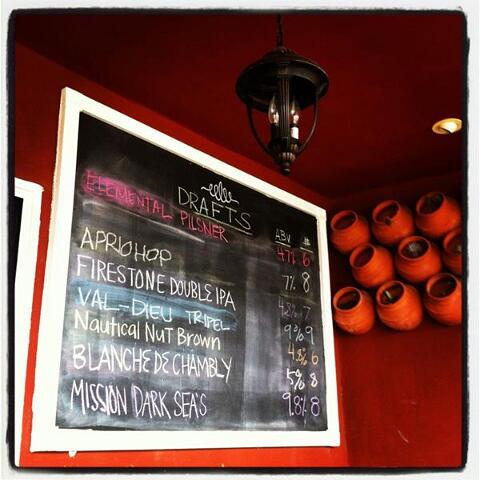 DRAFTS ABV
ELEMENTAL PILSNER 4.7% 6
APRIOHOP 7% 8
FIRESTONE DOUBLE IPA 7
VAL-DIEU TRIPEL 9% 9
Nautical Nut Brown 4.8% 6
BLANCHE DE CHAMBLY 5% 8
MISSION DARK SEA'S 9.8% 8